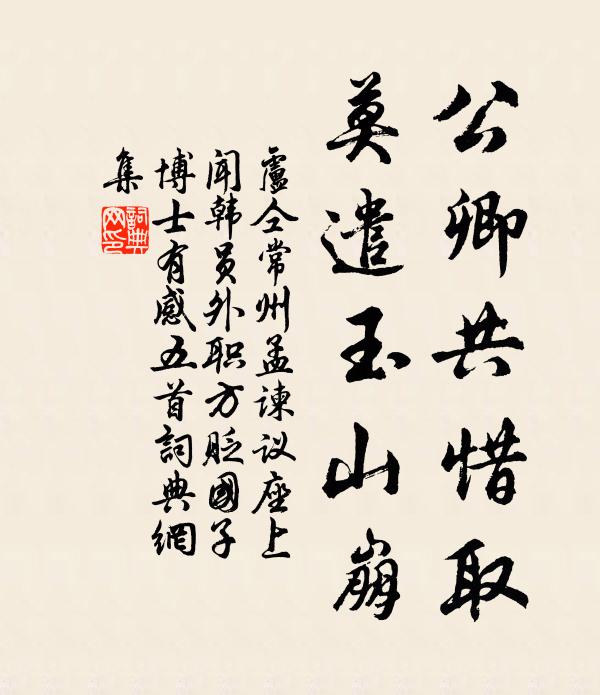 公卿共惜取
莫遣玉山崩
盧仝常州孟諫议座上
闻韩员外职方贬國子
博士有感五首詞典網
集
詞典
网印